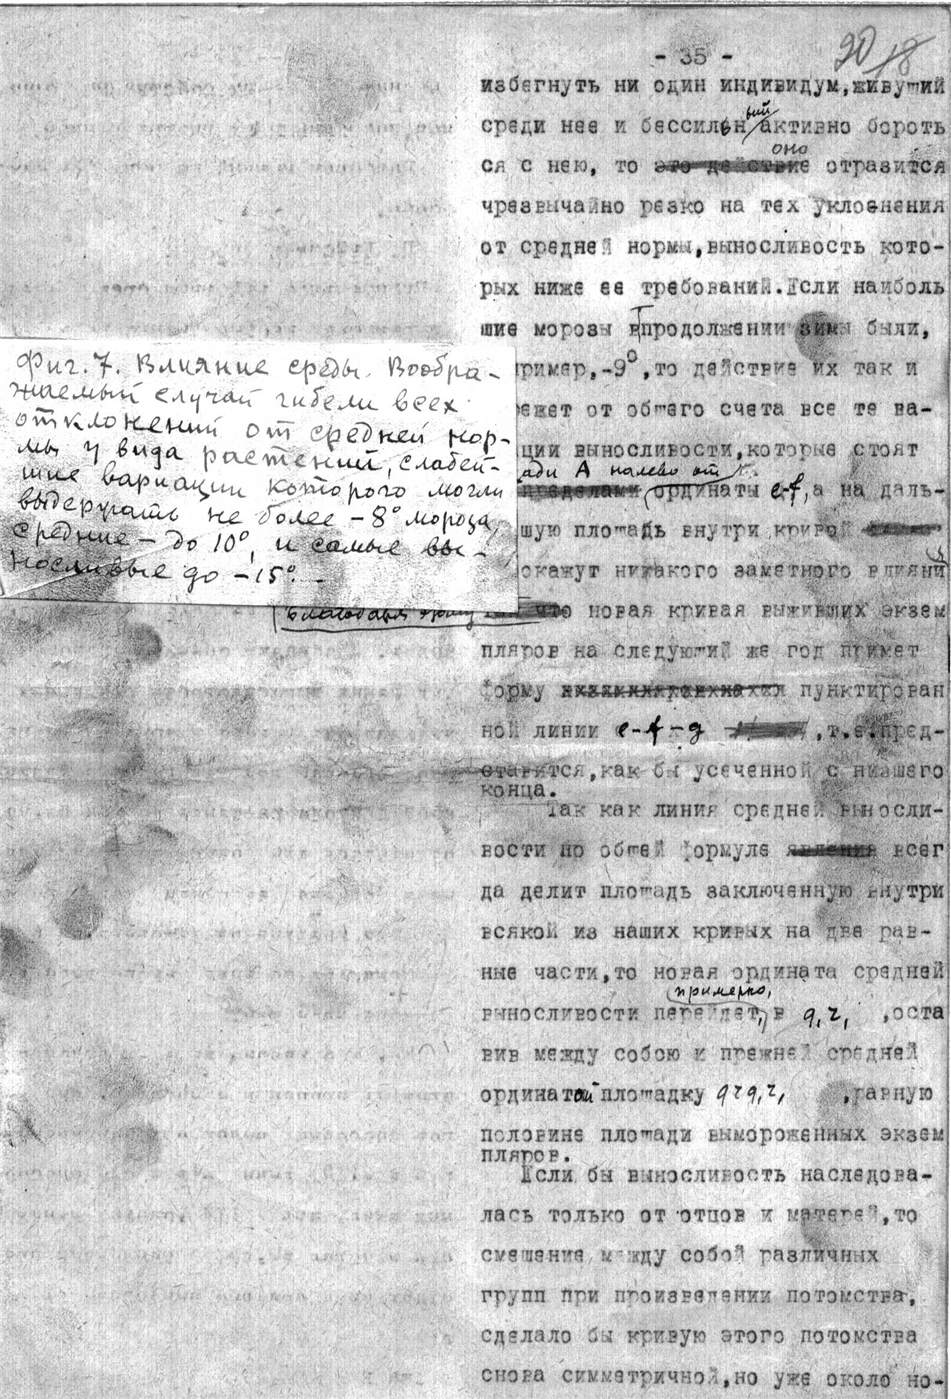 - 35 -
избегнуть ни один индивидум,живущий
среди нее и бессильный активно бороть
оно
ся с нею, то это действие отразится
чрезвычайно резко на тех уклонения
от средней нормы,выносливость кото-
рых ниже ее требований.Если наиболь
шие морозы в продолжении зимы были,
пример,-9°,то действие их так и
режет от общего счета все те ва-
ции выносливости,которые стоят
ади А налево от
пределами ординаты e-f,а на даль-
шую площадь внутри кривой
окажут никакого заметного влияни
Благодаря этому что новая кривая выживших экзем
пляров на следующий же год примет
форму пунктирован
ной линии e-f-g ,т.е.пред-
ставится,как бы усеченной с низшего
конца.
Так как линия средней выносли-
вости по общей формуле явления всег
да делит площадь заключенную внутри
всякой из наших кривых на две рав-
ные части,то новая ордината средней
примерно,
выносливости перейдет, в q,r, ,оста
вив между собою и прежней средней
ординатой площадку qrq,r, ,равную
половине площади вымороженных экзем
пляров.
Если бы выносливость наследова-
лась только от отцов и матерей,то
смешение между собой различных
групп при произведении потомства,
сделало бы кривую этого потомства
снова симметричной,но уже около но-
Фиг. 7. Влияние среды. Вообра-
жаемый случай гибели всех
отклонений от средней нор-
мы у вида растений, слабей-
шие вариации которого могли
выдержать не более -8° мороза,
средние - до 10°, и самые вы-
носливые до -15°.-